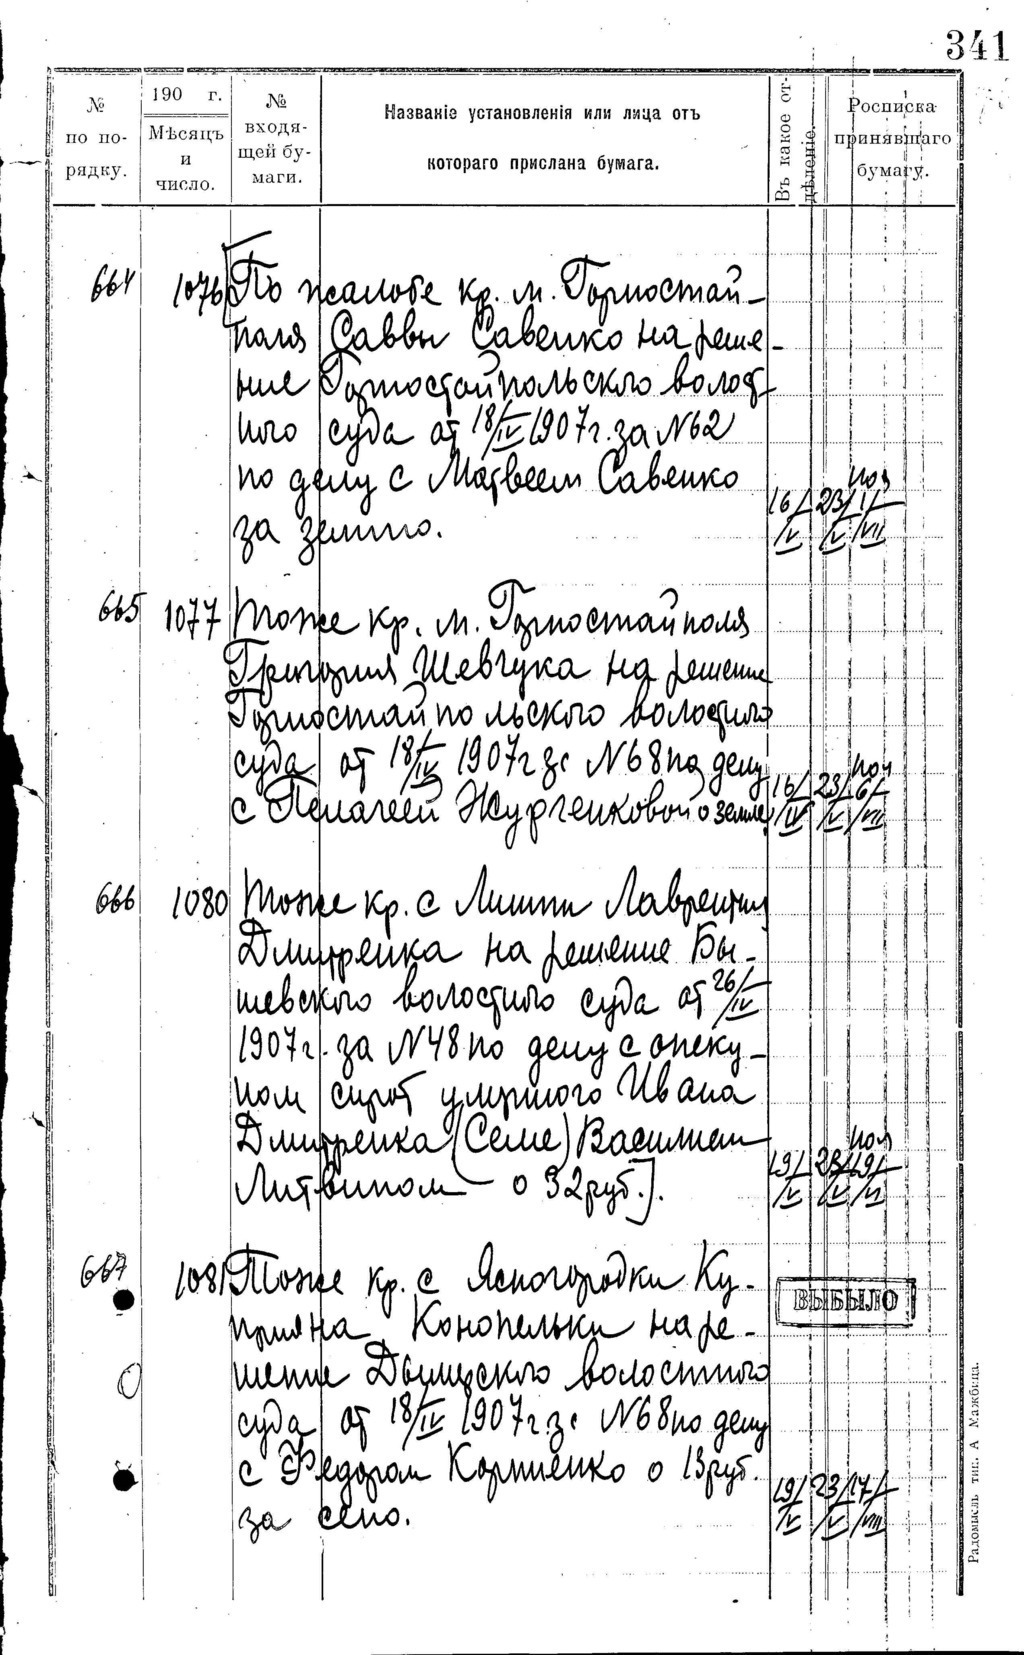 341
№ по по-рядку.
190 г.
Мѣсяцъ и число.
№ входя-щей бу-маги.
Названіе установленія или лица отъ
котораго прислана бумага.
Въ какое от-дѣленіе.
Росписка принявшаго бумагу.
664 1076 По жалобе кр. м. Горностай-
поля Саввы Савенко на реше-
ние Горностайпольского волост
ного суда от 18/IV 1907г. за №62
по делу с Матвеем Савенко
за землю.
16/V 23/V 1/VII
665 1077 Тоже кр. м. Горностайполя
Григория Шевчука на решение
Горностайпольского волостного
суда от 18/IV 1907г за №68 по делу
с Пелагеей Журченковой о земле
16/IV 23/V 6/VII
666 1080 Тоже кр. с Лишни Лаврентия
Дмитренка на решение Бы-
шевского волостного суда от 26/IV
1907г. за №48 по делу с опеку-
ном сирот умршого Ивана
Дмитренка (Семе) Василием
Литвином о 32 руб.].
19/V 23/V 19/VI
667 1081 Тоже кр. с Ясногородки Ку-
прияна Конопельки на ре-
шение Дымерского волостного
суда от 18/IV 1907г. за №68 по делу
с Федором Корниенко о 13 руб.
за сено.
19/V 23/V 17/VIII
ВЫБЫЛО
Радомысль тип. А Мажбица.